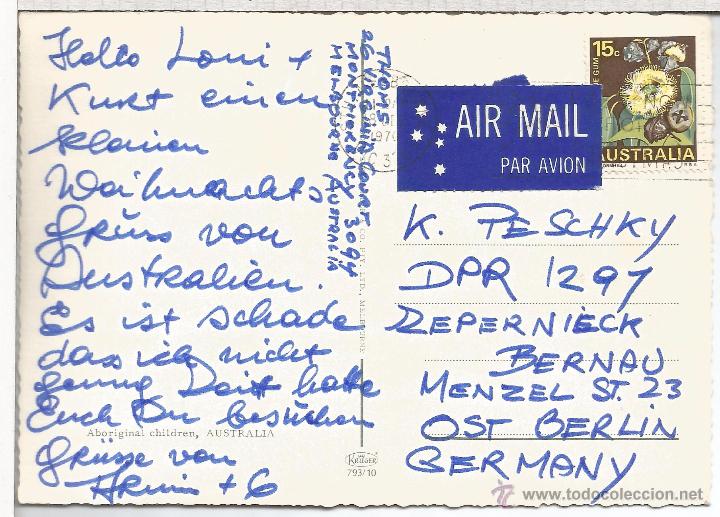 Hallo Loni +
Kurt einen
kleinen
Weihnachts
Gruss von
Australien.
Es ist schade
das ich nicht
genug Zeit hatte
Euch zu besuchen
Grüsse von
Armin + G
THOMS
26 VIRGINIA COURT
MONTMORENCY 3094
MELBOURNE AUSTRALIA
15c
GUM
AUSTRALIA
1970
AIR MAIL
PAR AVION
K. PESCHKY
DPR 1297
ZEPERNIECK
BERNAU
MENZEL ST. 23
OST BERLIN
GERMANY
CO. PTY. LTD., MELBOURNE
Aboriginal children, AUSTRALIA
KRÜGER
793/10
www.todocoleccion.net